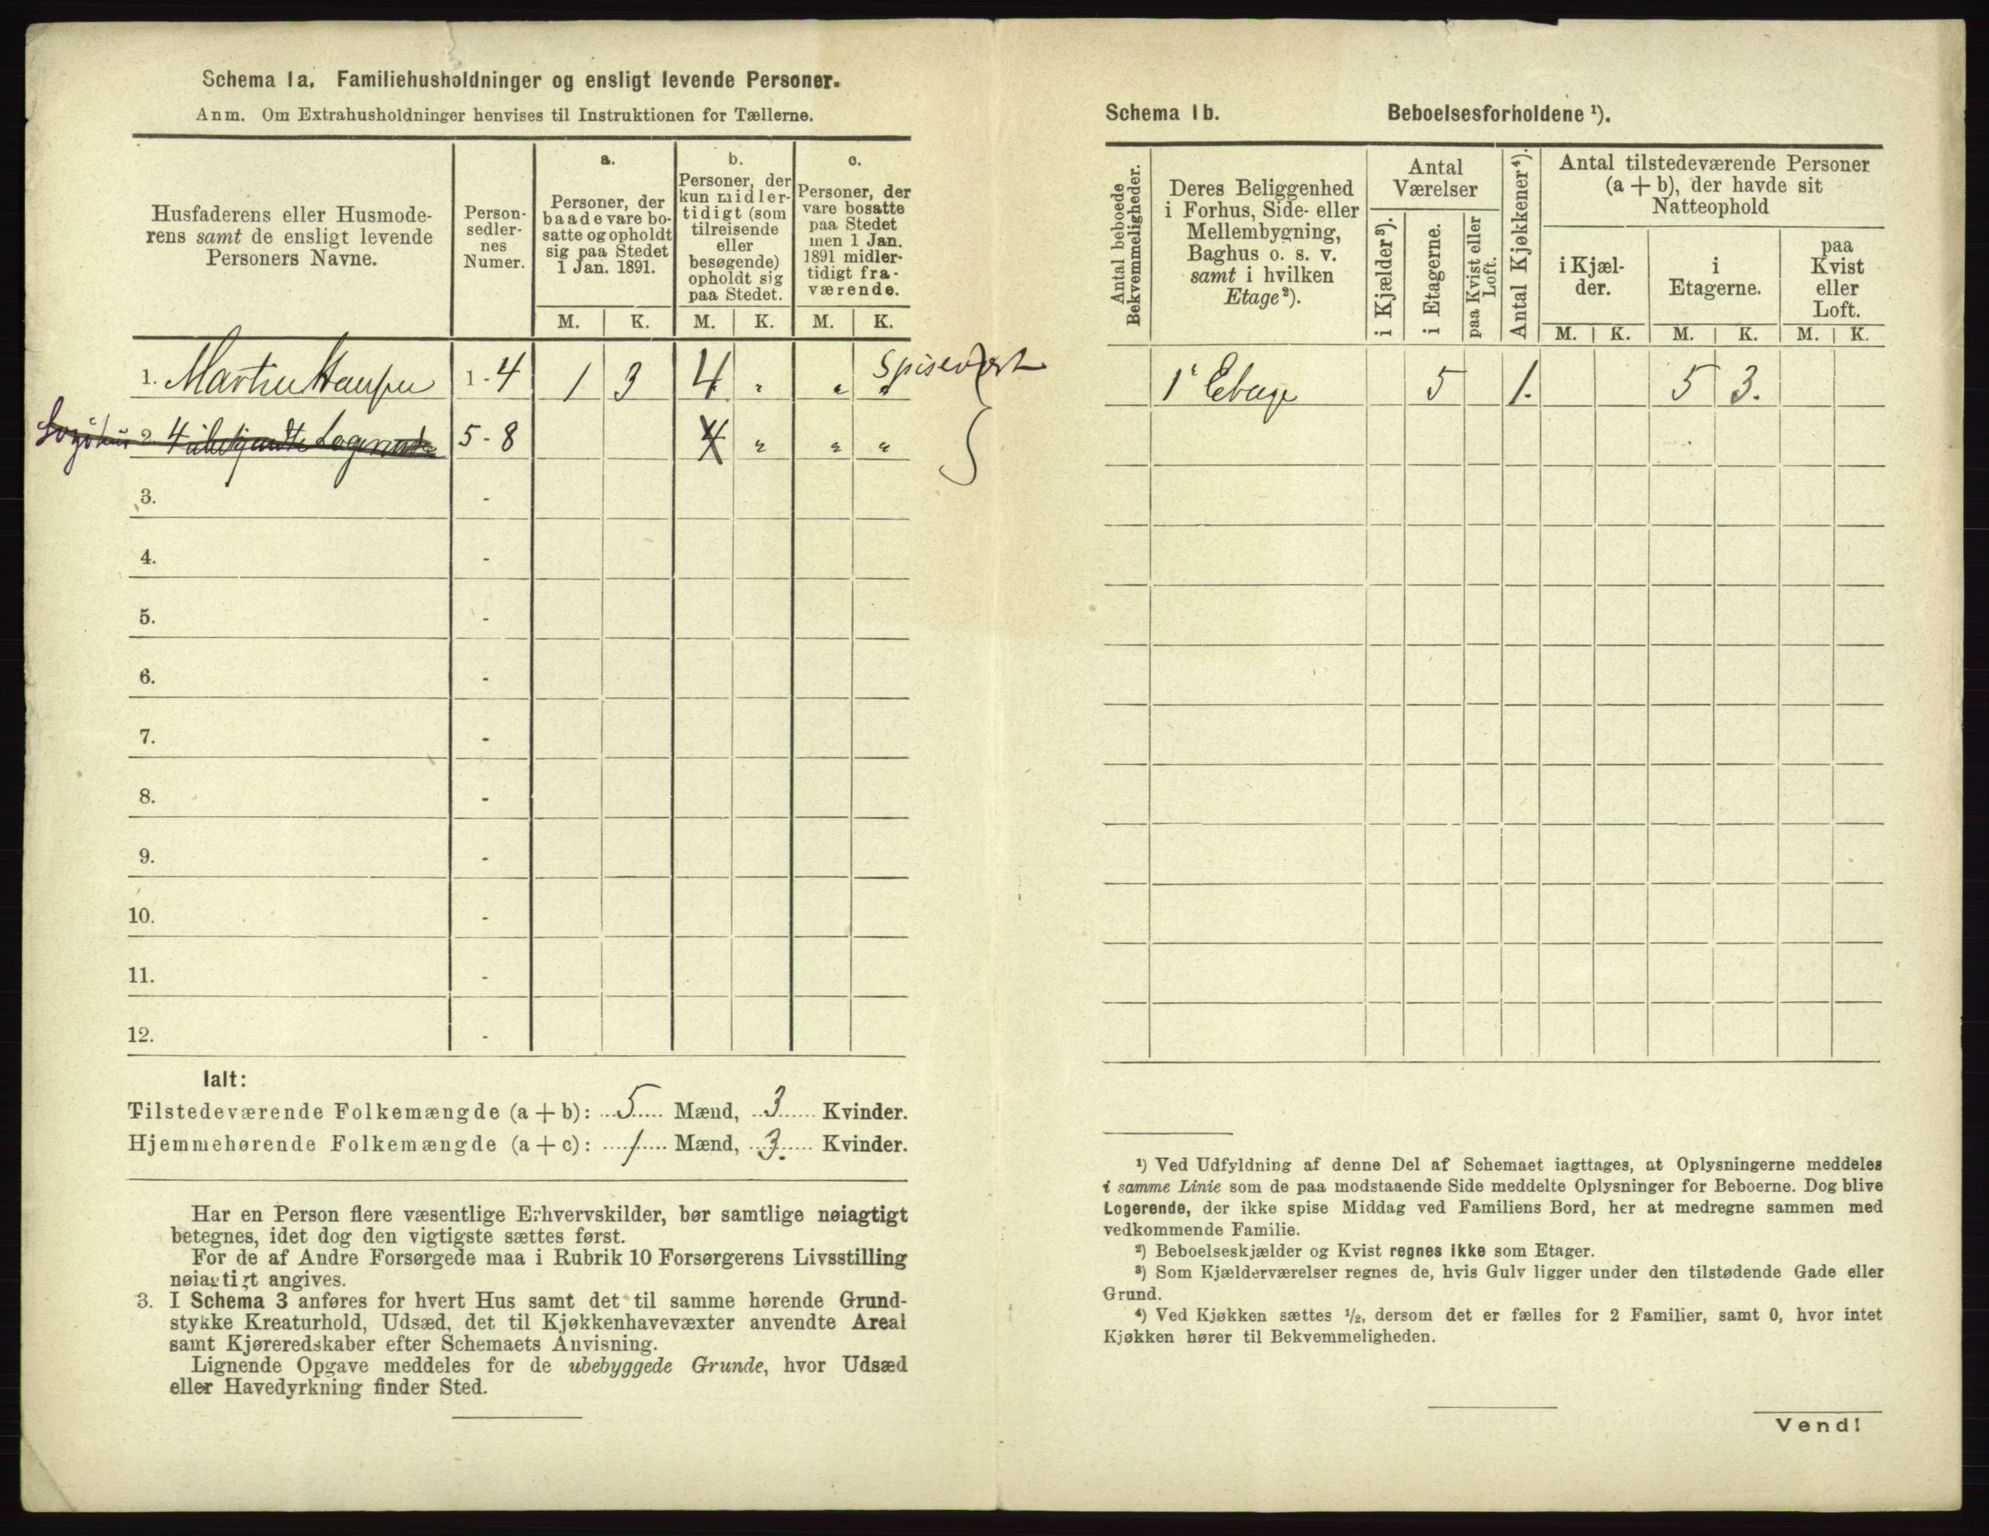 Schema 1a. Familiehusholdninger og ensligt levende Personer.
Anm. Om Extrahusholdninger henvises til Instruktionen for Tællerne.
Husfaderens eller Husmode-
rens samt de ensligt levende
Personers Navne.
Person-
sedler-
nes
Numer.
a.
Personer, der
baade vare bo-
satte og opholdt
sig paa Stedet
1 Jan. 1891.
b.
Personer, der
kun midler-
tidigt (som
tilreisende
eller
besøgende)
opholdt sig
paa Stedet.
c.
Personer, der
vare bosatte
paa Stedet
men 1 Jan.
1891 midler-
tidigt fra-
værende.
M. K. M. K. M. K.
Spisevert
1. Martin Hansen 1 - 4 1 3 4 " " "
Logihus 2. 4 ubekjendte Logerende 5 - 8 4 " " "
3. -
4. -
5. -
6. -
7. -
8. -
9. -
10. -
11. -
12. -
Ialt:
Tilstedeværende Folkemængde (a + b): 5 Mænd, 3 Kvinder.
Hjemmehørende Folkemængde (a + c): 1 Mænd, 3. Kvinder.
Har en Person flere væsentlige Erhvervskilder, bør samtlige nøiagtigt
betegnes, idet dog den vigtigste sættes først.
For de af Andre Forsørgede maa i Rubrik 10 Forsørgerens Livsstilling
nøiagtigt angives.
3. I Schema 3 anføres for hvert Hus samt det til samme hørende Grund-
stykke Kreaturhold, Udsæd, det til Kjøkkenhavevæxter anvendte Areal
samt Kjøreredskaber efter Schemaets Anvisning.
Lignende Opgave meddeles for de ubebyggede Grunde, hvor Udsæd
eller Havedyrkning finder Sted.
Schema 1b. Beboelsesforholdene ¹).
Antal beboede
Bekvemmeligheder.
Deres Beliggenhed
i Forhus, Side- eller
Mellembygning,
Baghus o. s. v.
samt i hvilken
Etage²).
Antal
Værelser
i Kjælder³).
i Etagerne.
paa Kvist eller
Loft.
Antal Kjøkkener⁴).
Antal tilstedeværende Personer
(a + b), der havde sit
Natteophold
i Kjæl-
der.
i
Etagerne.
paa
Kvist
eller
Loft.
M. K. M. K. M. K.
1' Etage 5 1. 5 3.
¹) Ved Udfyldning af denne Del af Schemaet iagttages, at Oplysningerne meddeles
i samme Linie som de paa modstaaende Side meddelte Oplysninger for Beboerne. Dog blive
Logerende, der ikke spise Middag ved Familiens Bord, her at medregne sammen med
vedkommende Familie.
²) Beboelseskjælder og Kvist regnes ikke som Etager.
³) Som Kjælderværelser regnes de, hvis Gulv ligger under den tilstødende Gade eller
Grund.
⁴) Ved Kjøkken sættes ½, dersom det er fælles for 2 Familier, samt 0, hvor intet
Kjøkken hører til Bekvemmeligheden.
Vend!